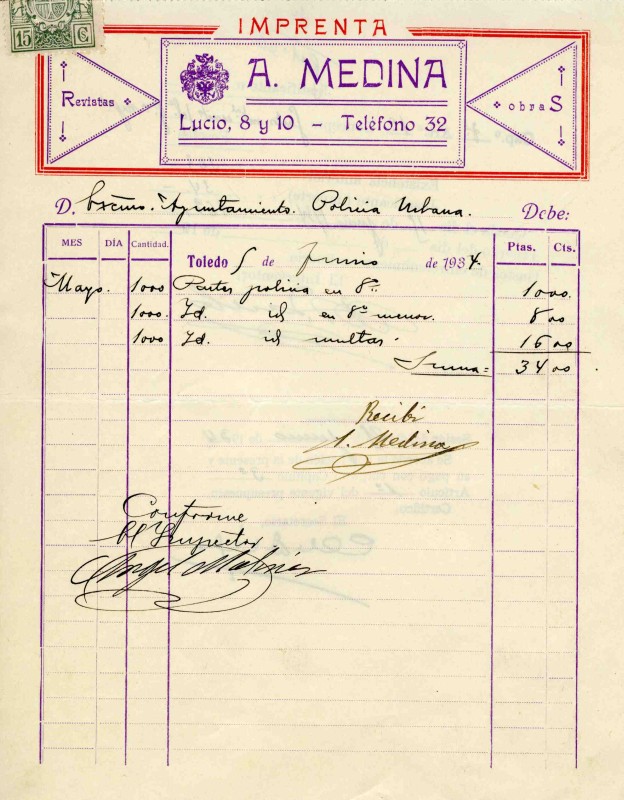 15 Cs
IMPRENTA
A. MEDINA
Lucio, 8 y 10 – Teléfono 32
Revistas
obras
D. Excmo. Ayuntamiento. Policia Urbana. Debe:
MES DÍA Cantidad. Ptas. Cts.
Toledo 5 de Junio de 1934.
Mayo. 1000 Partes policia en 8º 10 00.
1000. Id. id en 8º menor. 8 00
1000 Id. id multas. 16 00
Suma= 34 00.
Recibi
A. Medina
Conforme
El Inspector
Angel